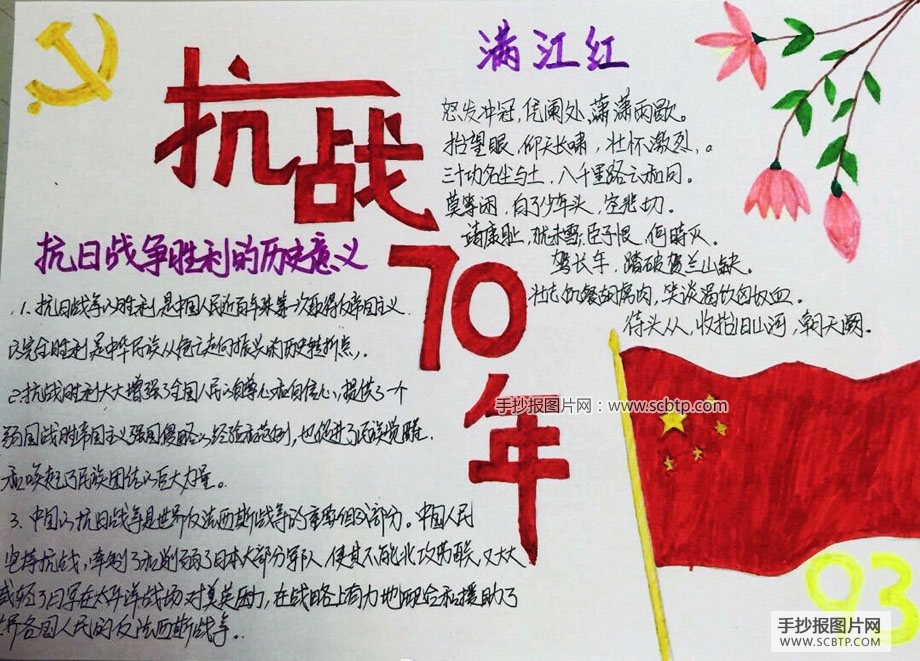 抗战
70
年
满江红
怒发冲冠,凭阑处,潇潇雨歇。
抬望眼,仰天长啸,壮怀激烈,。
三十功名尘与土,八千里路云和
莫等闲,白了少年头,空悲切。
靖康耻,犹未雪,臣子恨,何時灭。
驾长车,踏破贺兰山缺。
壮志饥餐胡虏肉,笑谈渴饮匈奴血。
待头从,收拾旧山河,朝天阙。
抗日战争胜利的历史意义
1.抗日战争的胜利是中国人民近百年来第一次取得反帝国主义
的完全胜利,是中华民族从危亡走向振兴的历史转折点。
2.抗战胜利大大增强了全国人民的自尊心和自信心,提供了一个
弱国战胜帝国主义强国侵略的经验和范例,也促进了民族觉醒.
和唤起了民族团结的巨大力量。
3.中国的抗日战争是世界反法西斯战争的重要组成部分。中国人民
坚持抗战,牵制了和削弱了日本大部分军队,使其不能北攻苏联,又大大
减轻了日军在太平洋战场对美英压力,在战略上有力地配合和援助了
界各国人民的反法西斯战争。
93
手抄报图片网:www.scbtp.com
手抄报图片网
WWW.SCBTP.COM